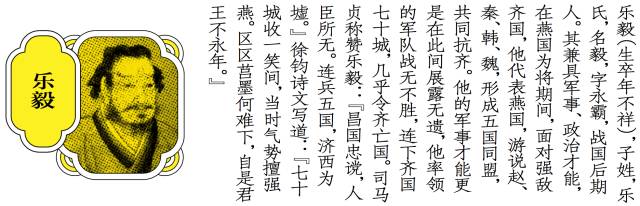 乐毅
乐毅（生卒年不祥），子姓，乐
氏，名毅，字永霸，战国后期
人。其兼具军事、政治才能，
在燕国为将期间，面对强敌
齐国，他代表燕国，游说赵、
秦、韩、魏，形成五国同盟，
共同抗齐。他的军事才能更
是在此间展露无遗，他率领
的军队战无不胜，连下齐国
七十城，几乎令齐亡国。司马
贞称赞乐毅：『昌国忠谠，人
臣所无。连兵五国，济西为
墟。』徐钧诗文写道：『七十
城收一笑间，当时气势擅强
燕。区区莒墨何难下，自是君
王不永年。』